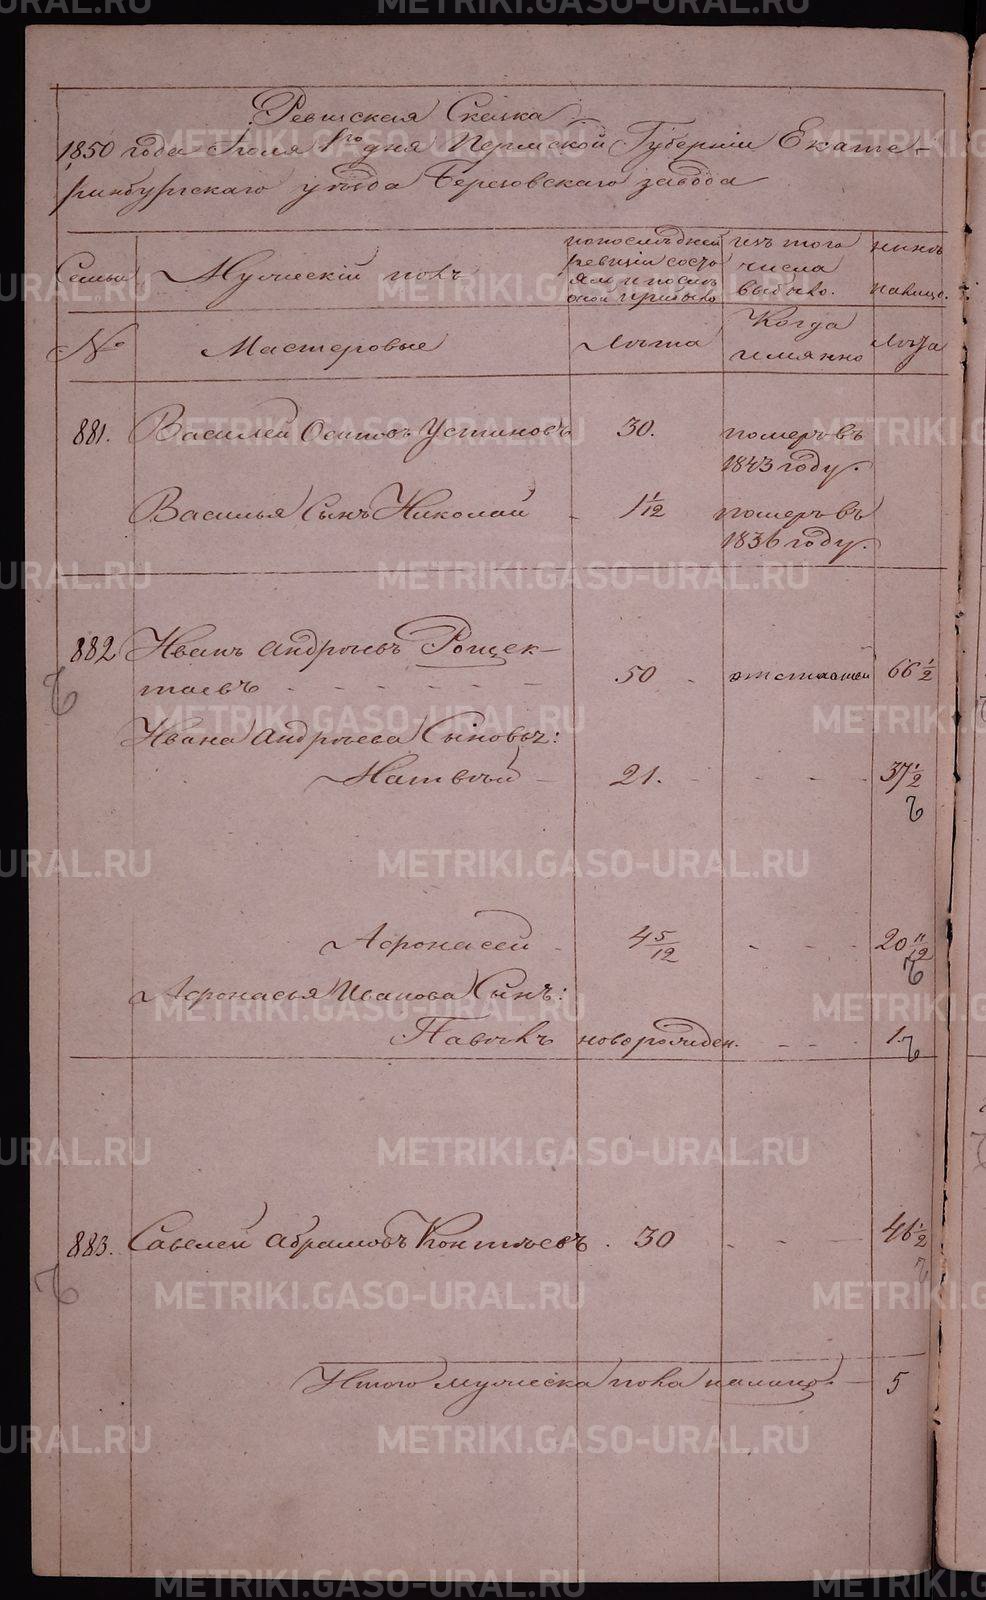 Ревизская Сказка
1850 года Июля 1го дня Пермской Губернии Екате-
ринбургскаго уезда Березовскаго завода
Семьи
Мужескiй полъ
по последней
ревизiи состо
яло и после
оной прибыло
изъ того
числа
выбыло.
ныне
налицо.
№
Мастеровые
Лета
Когда
имянно
Лета
881.
Василей Осиповъ Устиновъ
30.
померъ въ
1843 году.
Василья Сынъ Николай
1 1/12
померъ въ
1836 году.
882
Иванъ Андреевъ
50
отставной
66 1/2
Ивана Андреева Сыновья:
Матвей
21.
37 1/2
Афонасей
4 5/12
20 11/12
Афонасья Иванова Сынъ:
новорожден.
1.
883.
Савелей Абрамовъ
30
46 1/2
Итого мужеска пола налицо.
5
METRIKI.GASO-URAL.RU